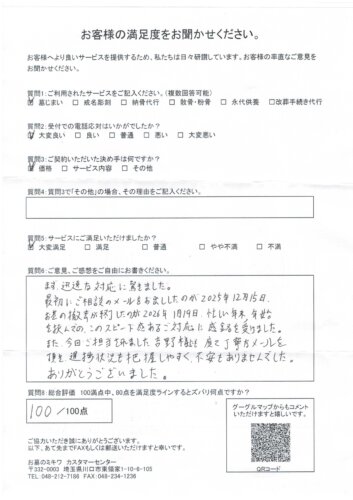 お客様の満足度をお聞かせください。
お客様へより良いサービスを提供するため、私たちは日々研鑽しています。お客様の率直なご意見を
お聞かせください。
質問1:ご利用されたサービスをご記入ください。(複数回答可能)
墓じまい 戒名彫刻 納骨代行 散骨・粉骨 永代供養 改葬手続き代行
質問2:受付での電話応対はいかがでしたか?
大変良い 良い 普通 悪い 大変悪い
質問3:ご契約いただいた決め手は何ですか?
価格 サービス内容 その他
質問4:質問3で「その他」の場合、その理由をご記入ください。
質問5:サービスにご満足いただけましたか?
大変満足 満足 普通 やや不満 不満
質問6:ご意見、ご感想をご自由にお書きください。
まず、迅速な対応に驚きました。
最初にご相談のメールをお出ししたのが2025年12月15日、
お墓の撤去が終了したのが2026年1月19日、忙しい年末、年始
を挟んでの、このスピード感あるご対応に感銘を受けました。
また、今回ご担当頂きました吉野様も 丁寧なメールを
頂き進捗状況を把握しやすく、不安もありませんでした。
ありがとうございました。
質問8:総合評価 100満点中、80点を満足度ラインするとズバリ何点ですか?
100 /100点
グーグルマップからもコメント
いただけますと嬉しいです!
QRコード
ご協力いただき誠にありがとうございます。
以下、あて先までFAXもしくは郵送いただけますと幸いです。
お墓のミキワ カスタマーセンター
〒332-0003 埼玉県川口市東領家1-10-6-105
TEL:048-212-7186 FAX:048-234-1236